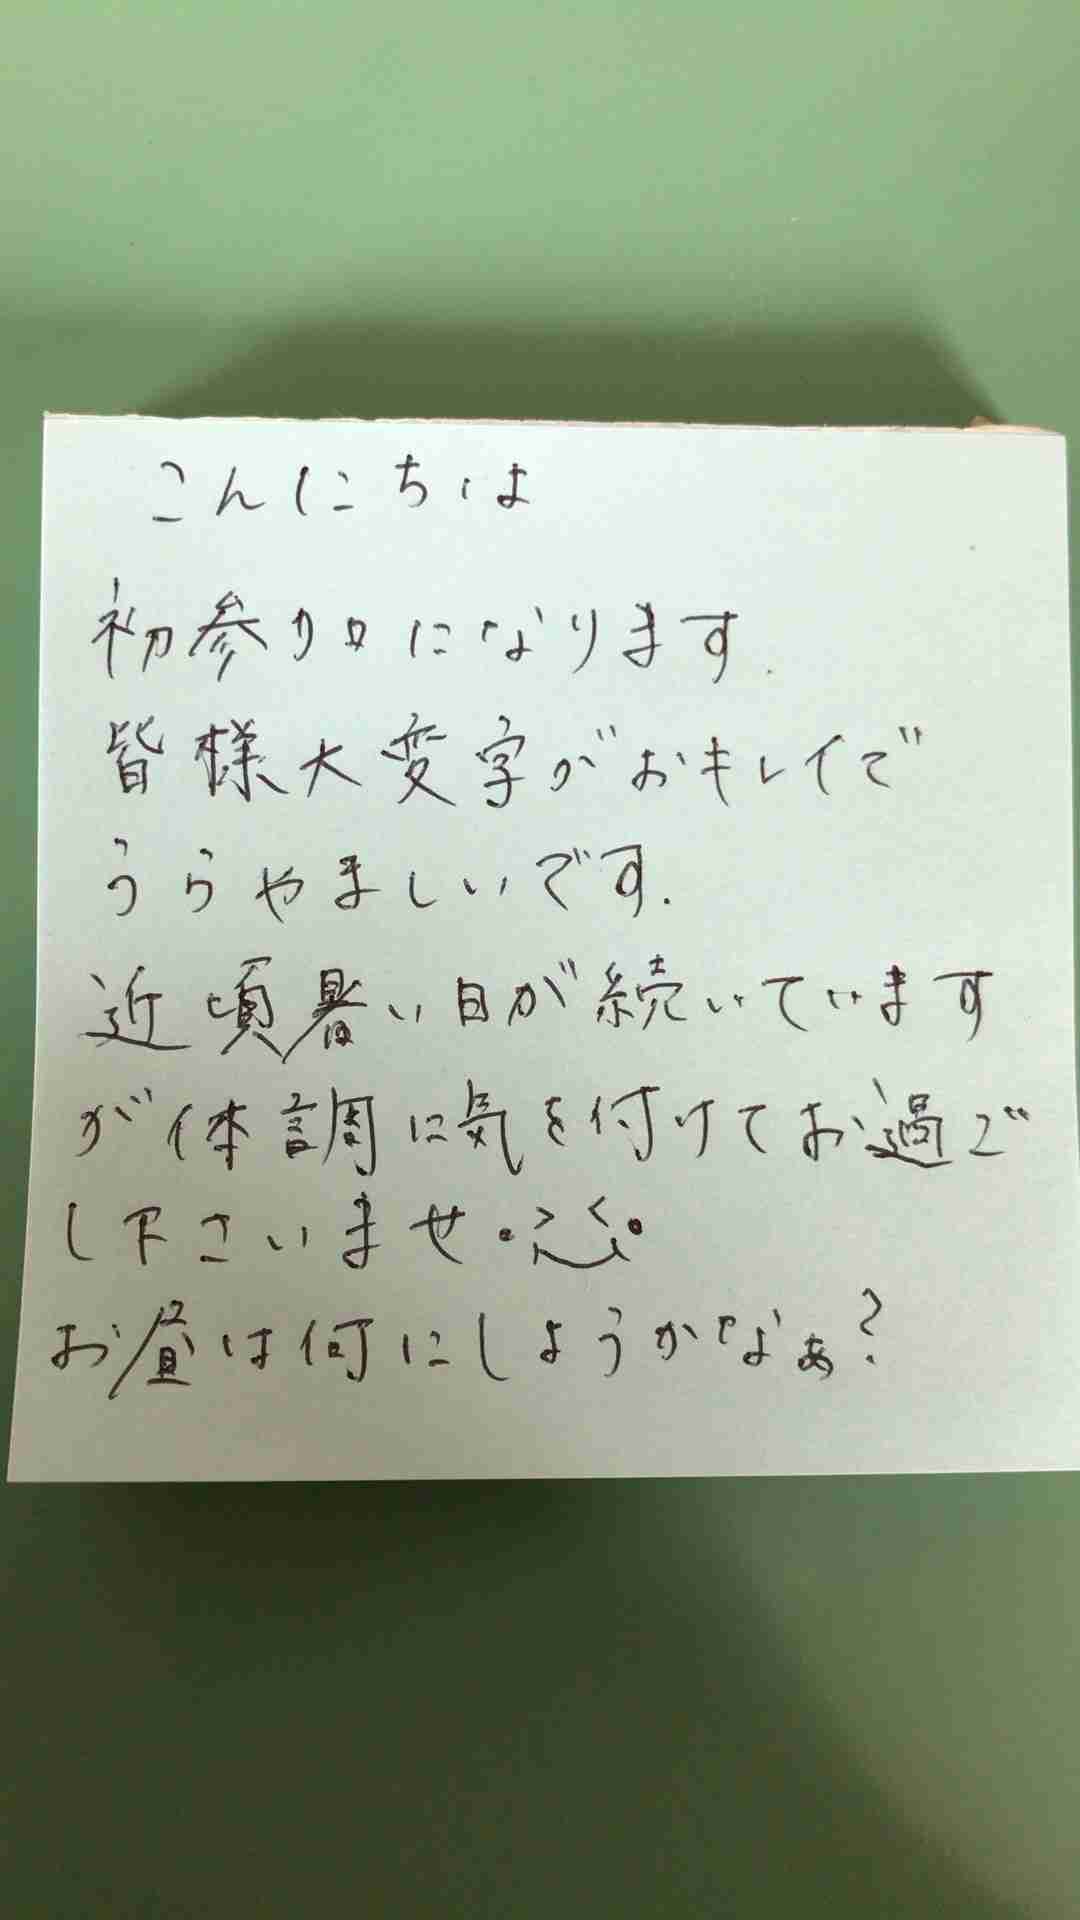 こんにちは
初参加になります.
皆様大変字がおキレイで
うらやましいです.
近頃暑い日が続いています
が体調に気を付けてお過ご
し下さいませ
お昼は何にしようかなぁ?